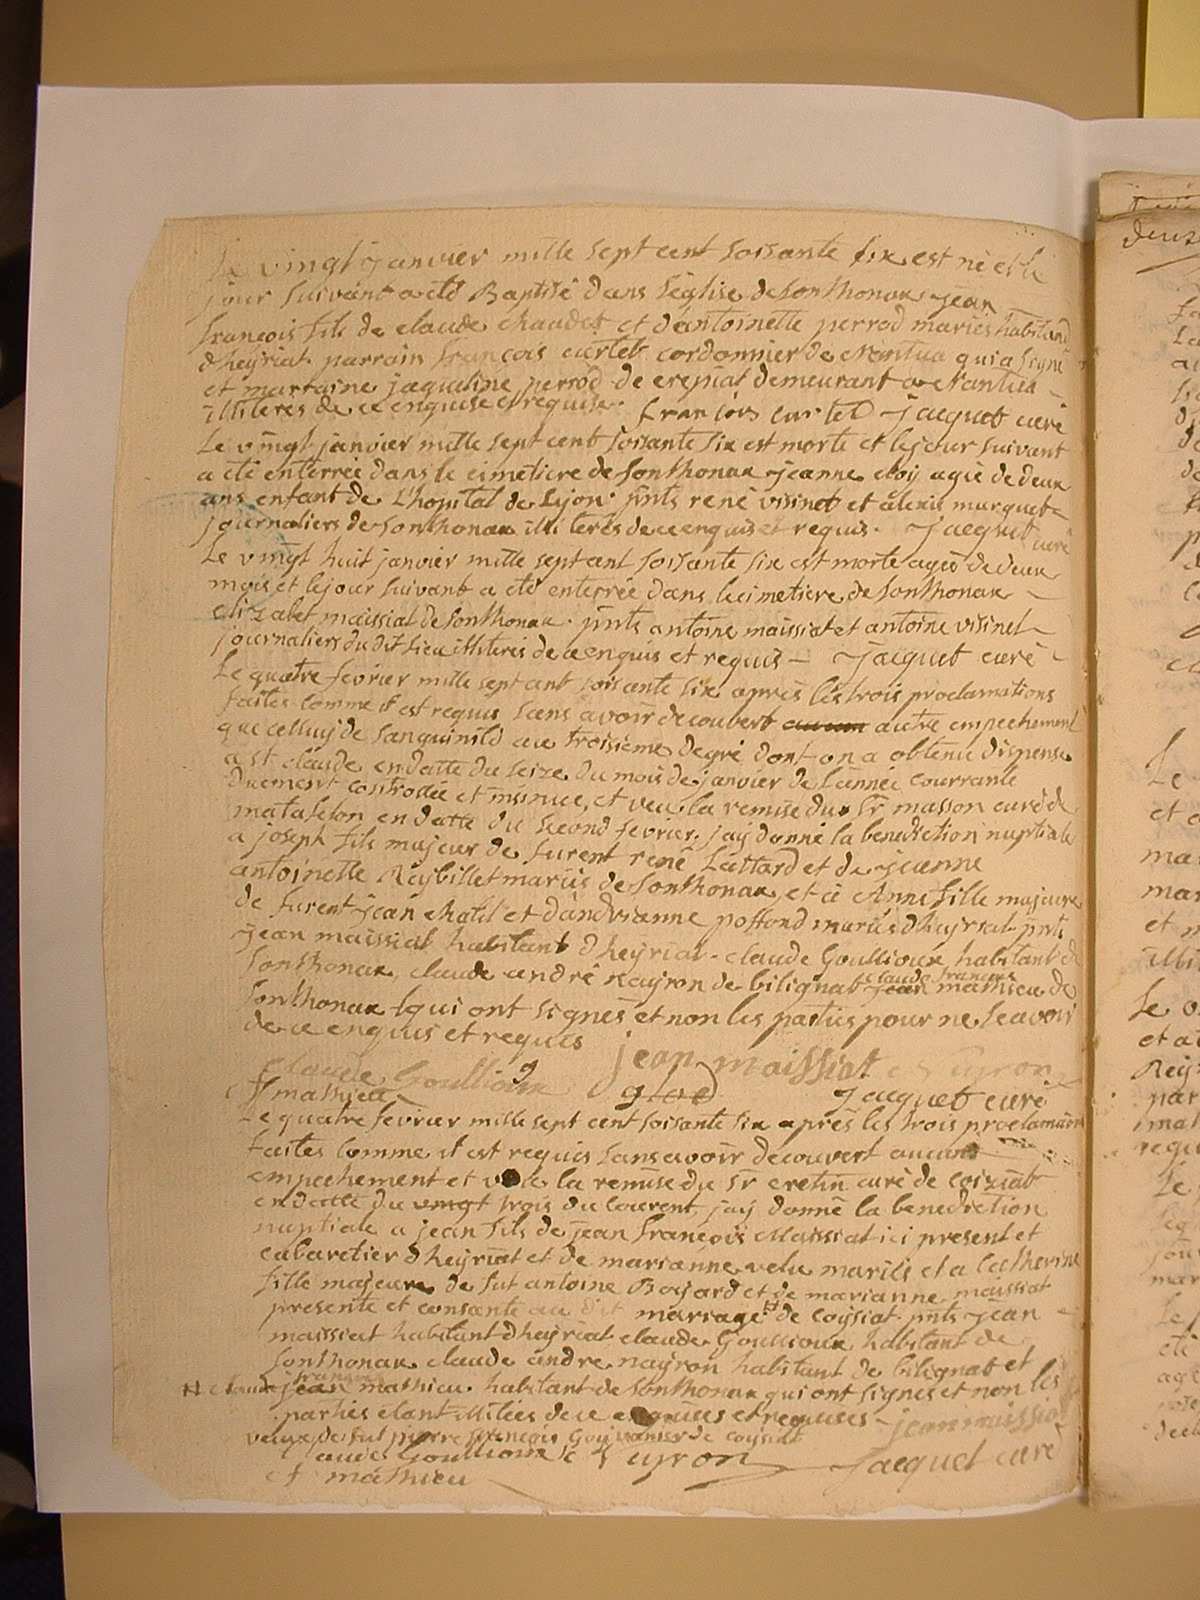 Le vingt janvier mille sept cent soisante six est né et le
jour suivant a eté Baptisé dans l'église de Sonthonax jean
françois fils de claude chaudet et d'antoinette perrod mariés habitans
d'heyriat parrain françois curtet cordonnier de Nantua qui a signé
et marraine jaqueline perrod de crepiat demeurant a Nantua
illiterés de ce enquise et requise. francois curtet jacquet curé
Le vingt janvier mille sept cent soisante six est morte et le jour suivant
a eté enterrée dans le cimetiere de Sonthonax jeanne eloy agée de deux
ans enfant de L'hopital de Lyon pnts rené visinet et alexis murquet
journaliers de Sonthonax illiterés de ce enquis et requis. jacquet curé
Le vingt huit janvier mille sept cent soisante six est morte agée de deux
mois et le jour suivant a eté enterrée dans le cimetiere de Sonthonax
elizabet maissiat de Sonthonax pnts antoine maissiat et antoine visinet
journaliers du dit lieu illiterés de ce enquis et requis jacquet curé
Le quatre fevrier mille sept cent soisante six aprés les trois proclamations
faites comme il est requis sans avoir decouvert aucun autre empechement
que celluy de sanguinité au troisième degré dont on a obtenu dispense
a st claude en datte du seize du mois de janvier de l'année courrante
duement controllée et insinuée, et veu la remise du Sr masson curé de
matafelon en datte du second fevrier, j'ay donné la benediction nuptiale
a joseph fils majeur de furent rené Lattard et de jeanne
antoinette Raybillet mariés de Sonthonax, et a Anne fille majeure
de furent jean chatel et d'andrianne poffond mariés d'heyriat pnts
jean maissiat habitant d'heyriat, claude Goullioux habitant de
Sonthonax, claude andré Nayron de bilignat claude françois jean mathieu de
Sonthonax qui ont signés et non les parties pour ne sçavoir
de ce enquis et requis jean maissiat
Claude Goullioux Nayron
cf mathieu jacquet curé
Le quatre fevrier mille sept cent soisante six aprés les trois proclamations
faites comme il est requis sans avoir decouvert aucun
empechement et veu la remise du Sr cretin curé de coiziat
en datte du vingt trois du courent, j'ay donné la benediction
nuptiale a jean fils de jean françois Maissiat ici present et
cabaretier d'heyriat et de marianne velu mariés et a Catherine
fille majeure de fut antoine Bojard et de marianne maissiat
presente et consante au dit mariage # de coysiat pnts jean
maissiat habitant d'heyriat claude Goullioux habitant de
Sonthonax claude andre nayron habitant de bilignat et
# claude françois jean mathieu habitant de Sonthonax qui ont signés et non les
parties etant illitées de ce enquises et requises jean maissiat
veuve de fut pierre françois Goyvannier de coysiat
Claude Goullioux Nayron jacquet curé
cf mathieu